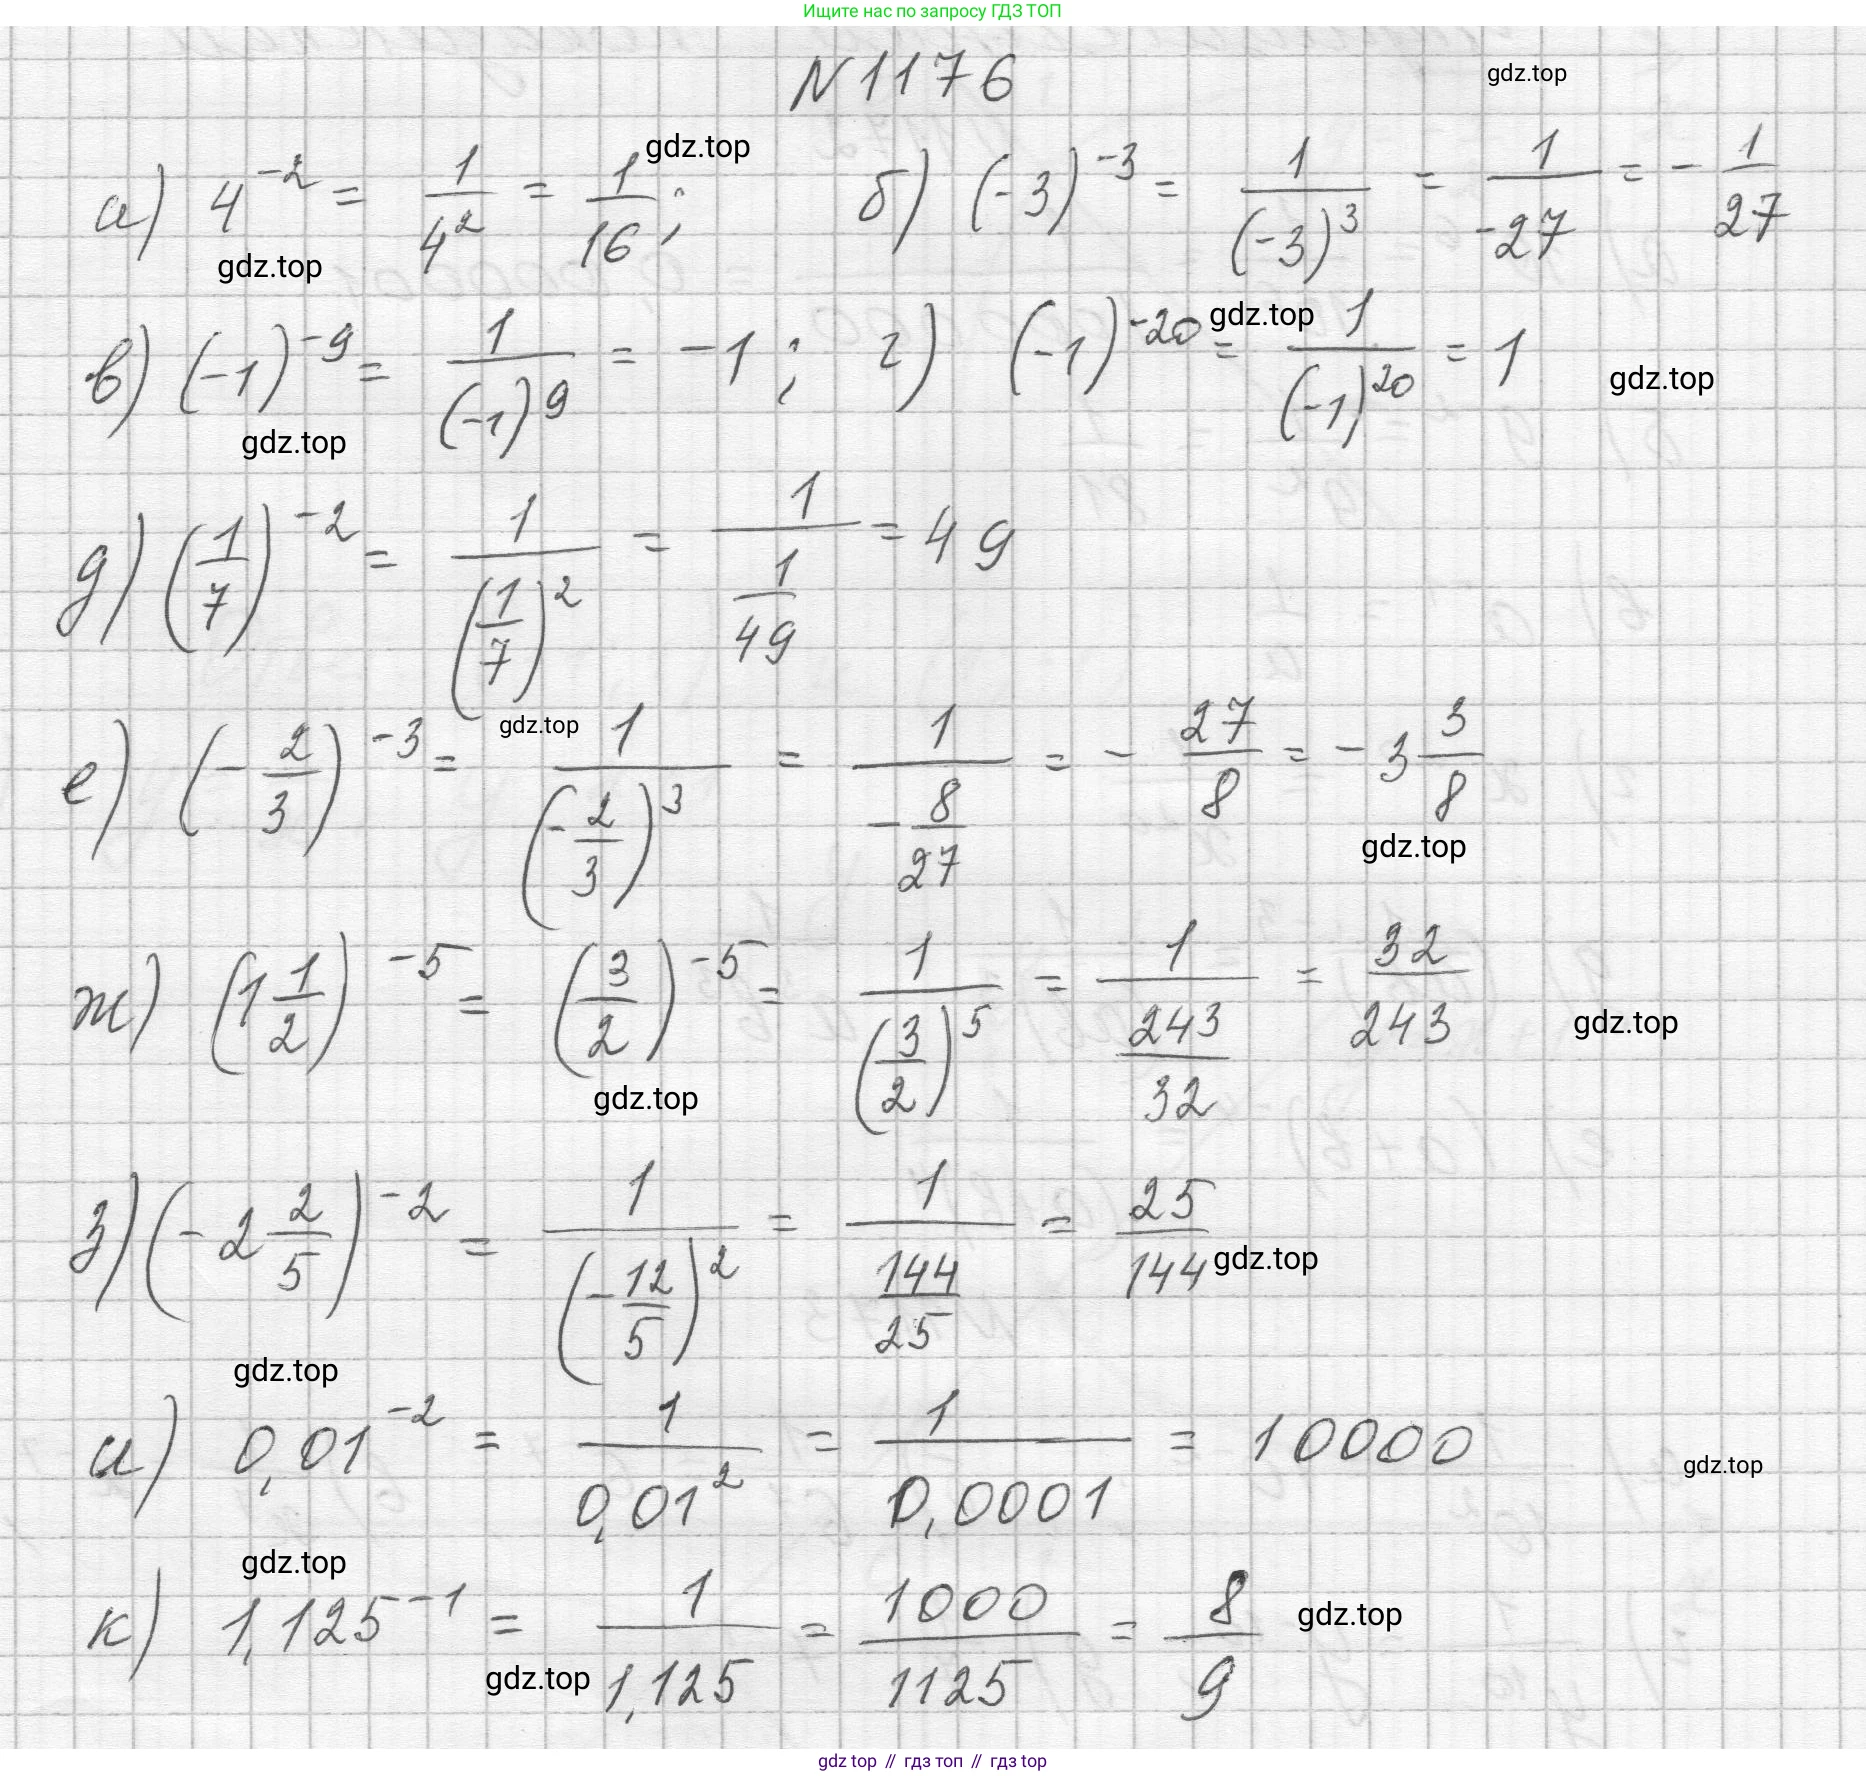 Ищите нас по запросу ГДЗ ТОП
N 1176
gdz.top
а) 4^-2 = 1/4^2 = 1/16; gdz.top б) (-3)^-3 = 1/(-3)^3 = 1/-27 = -1/27
gdz.top
в) (-1)^-9 = 1/(-1)^9 = -1; г) (-1)^-20 = 1/(-1)^20 = 1
gdz.top
gdz.top
gdz.top
д) (1/7)^-2 = 1/(1/7)^2 = 1/(1/49) = 49
е) (-2/3)^-3 = 1/(-2/3)^3 = 1/(-8/27) = -27/8 = -3 3/8
gdz.top
gdz.top
ж) (1 1/2)^-5 = (3/2)^-5 = 1/(3/2)^5 = 1/(243/32) = 32/243
gdz.top
gdz.top
з) (-2 2/5)^-2 = 1/(-12/5)^2 = 1/(144/25) = 25/144
gdz.top
gdz.top
и) 0,01^-2 = 1/0,01^2 = 1/0,0001 = 10000
gdz.top
gdz.top
к) 1,125^-1 = 1/1,125 = 1000/1125 = 8/9
gdz.top
gdz.top
gdz top // гдз топ // гдз top